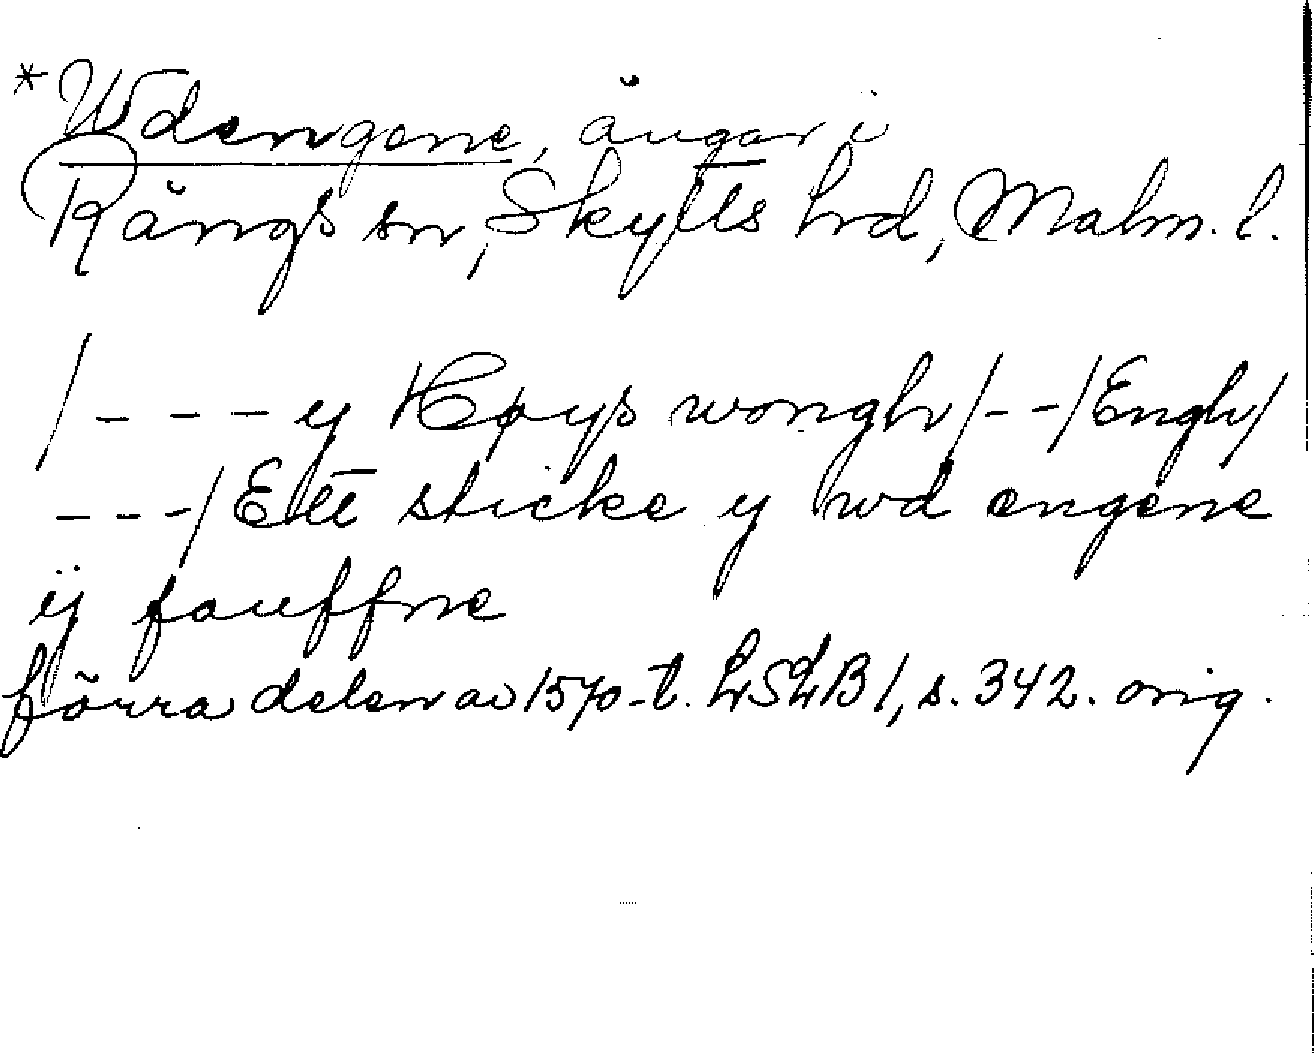 *Wdengene, ängar i
Rängs sn, Skytts hrd, Malm. l.
/ - - - y Høys wongh / - - / Engh /
- - - / Ett sticke y wd engene
ij fauffne
förra delen av 1570-t. LSLB 1, s. 342. orig.